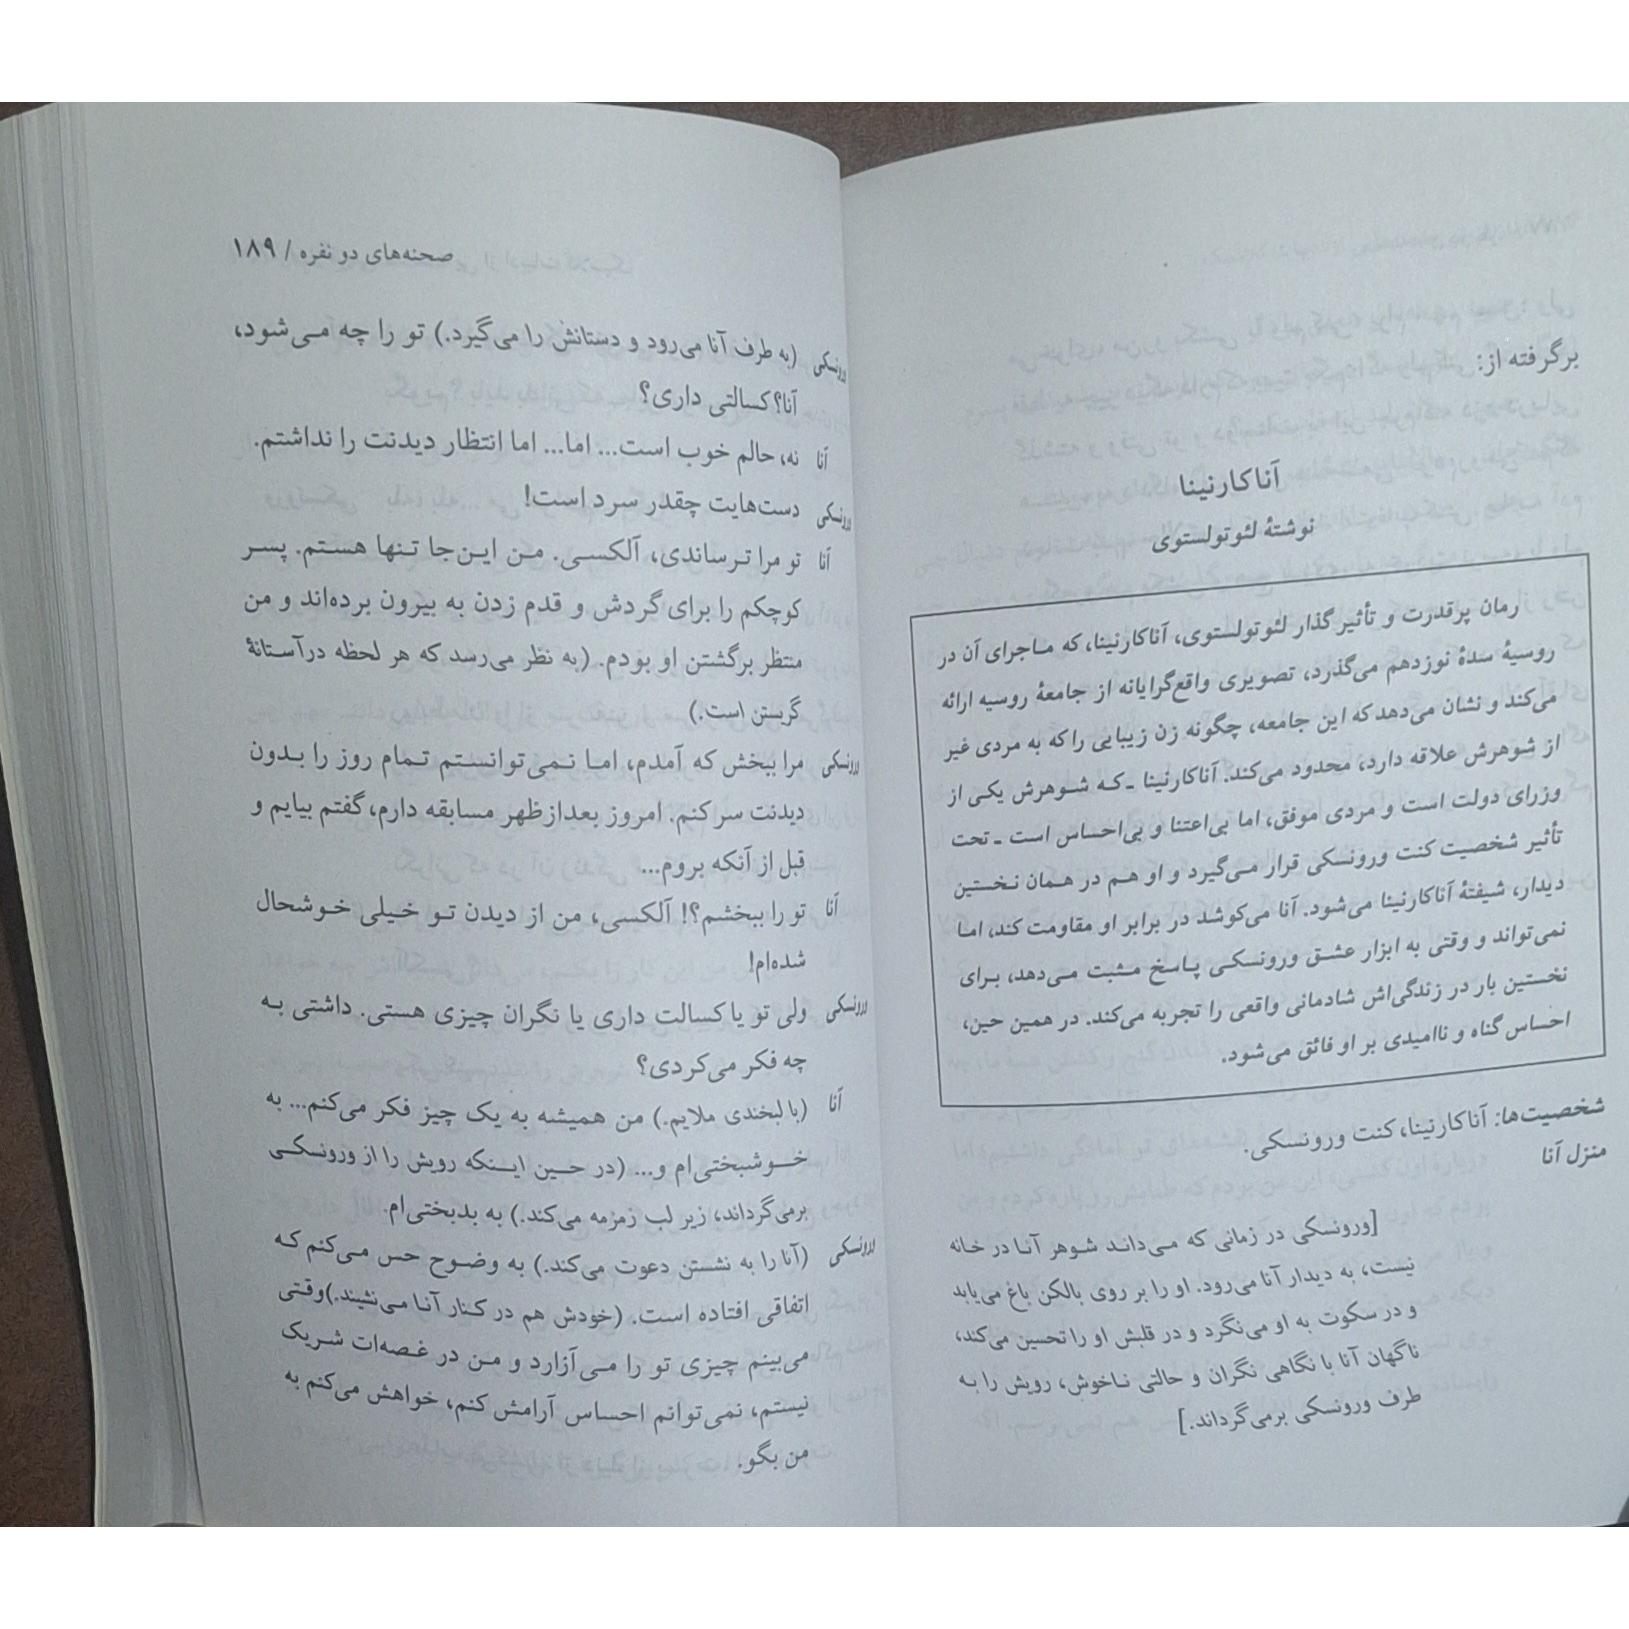 برگرفته از:
آناکارنینا
نوشتهٔ لئوتولستوی
رمان پرقدرت و تأثیرگذار لئوتولستوی، آناکارنینا، که ماجرای آن در
روسیهٔ سدهٔ نوزدهم می‌گذرد، تصویری واقع‌گرایانه از جامعهٔ روسیه ارائه
می‌کند و نشان می‌دهد که این جامعه، چگونه زن زیبایی را که به مردی غیر
از شوهرش علاقه دارد، محدود می‌کند. آناکارنینا ـ که شوهرش یکی از
وزرای دولت است و مردی موفق، اما بی‌اعتنا و بی‌احساس است ـ تحت
تأثیر شخصیت کنت ورونسکی قرار می‌گیرد و او هم در همان نخستین
دیدار، شیفتهٔ آناکارنینا می‌شود. آنا می‌کوشد در برابر او مقاومت کند، اما
نمی‌تواند و وقتی به ابزار عشق ورونسکی پاسخ مثبت می‌دهد، برای
نخستین بار در زندگی‌اش شادمانی واقعی را تجربه می‌کند. در همین حین،
احساس گناه و ناامیدی بر او فائق می‌شود.
شخصیت‌ها: آناکارنینا، کنت ورونسکی.
منزل آنا
[ورونسکی در زمانی که می‌داند شوهر آنا در خانه
نیست، به دیدار آنا می‌رود. او را بر روی بالکن باغ می‌یابد
و در سکوت به او می‌نگرد و در قلبش او را تحسین می‌کند،
ناگهان آنا با نگاهی نگران و حالتی ناخوش، رویش را به
طرف ورونسکی برمی‌گرداند.]
صحنه‌های دو نفره / ۱۸۹
ورونسکی (به طرف آنا می‌رود و دستانش را می‌گیرد.) تو را چه می‌شود،
آنا؟ کسالتی داری؟
آنا نه، حالم خوب است... اما... اما انتظار دیدنت را نداشتم.
ورونسکی دست‌هایت چقدر سرد است!
آنا تو مرا ترساندی، آلکسی. من این‌جا تنها هستم. پسر
کوچکم را برای گردش و قدم زدن به بیرون برده‌اند و من
منتظر برگشتن او بودم. (به نظر می‌رسد که هر لحظه درآستانهٔ
گریستن است.)
ورونسکی مرا ببخش که آمدم، اما نمی‌توانستم تمام روز را بدون
دیدنت سر کنم. امروز بعدازظهر مسابقه دارم، گفتم بیایم و
قبل از آنکه بروم...
آنا تو را ببخشم؟! آلکسی، من از دیدن تو خیلی خوشحال
شده‌ام!
ورونسکی ولی تو یا کسالت داری یا نگران چیزی هستی. داشتی به
چه فکر می‌کردی؟
آنا (با لبخندی ملایم.) من همیشه به یک چیز فکر می‌کنم... به
خوشبختی‌ام و... (در حین اینکه رویش را از ورونسکی
برمی‌گرداند، زیر لب زمزمه می‌کند.) به بدبختی‌ام.
ورونسکی (آنا را به نشستن دعوت می‌کند.) به وضوح حس می‌کنم که
اتفاقی افتاده است. (خودش هم در کنار آنا می‌نشیند.)وقتی
می‌بینم چیزی تو را می‌آزارد و من در غصه‌ات شریک
نیستم، نمی‌توانم احساس آرامش کنم، خواهش می‌کنم به
من بگو.